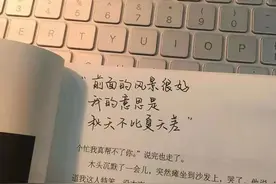 E R T Y U I O P
“前面的风景很好
我的意思是
秋天不比夏天差”
个忙我真帮不了你。”说完也走了。
木头沉默了一会儿，突然瘫坐到沙发上，哭了，他说